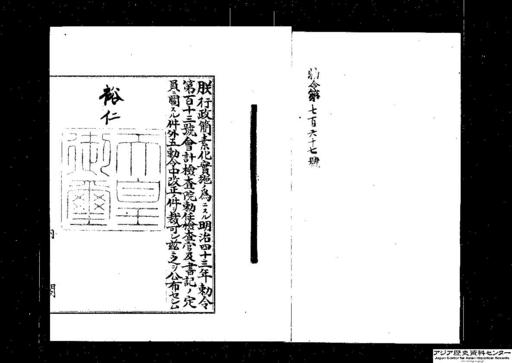 勅令第七百六十七號
朕行政簡素化實施ノ爲ニスル明治四十三年勅令
第百十三號會計檢査院勅任檢査官及書記ノ定
員ニ關スル件外五勅令中改正ノ件ヲ裁可シ茲ニ之ヲ公布セシム
裕仁
天皇
御璽
内閣
アジア歴史資料センター
Japan Center for Asian Historical Records